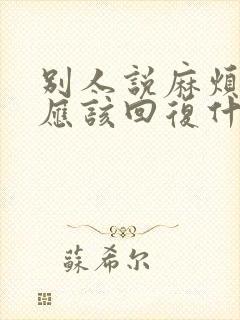 別人說麻煩
應該回復什
蘇希尔